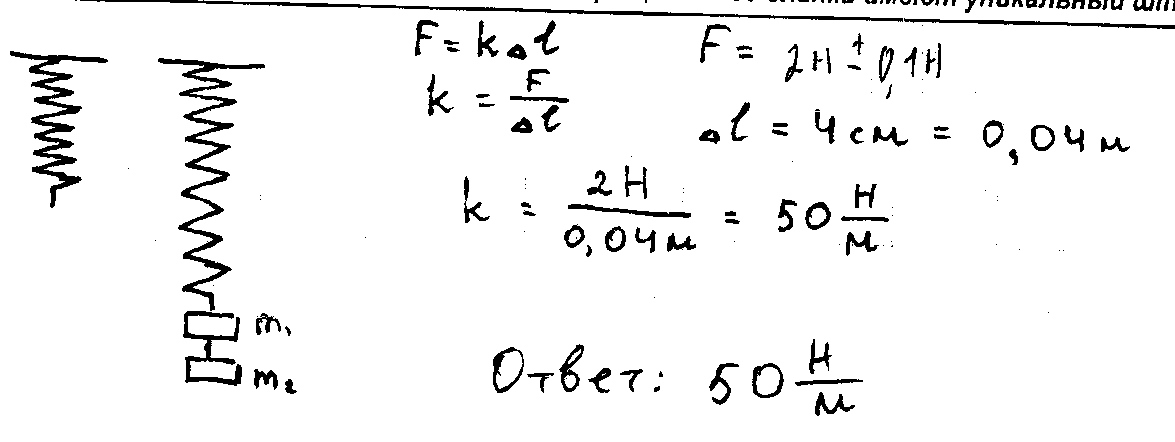 уникальный шт
F = k△l F = 2Н ± 0,1Н
k = F/△l
△l = 4 см = 0,04 м
k = 2Н/0,04м = 50 Н/м
m₁
m₂
Ответ: 50 Н/м